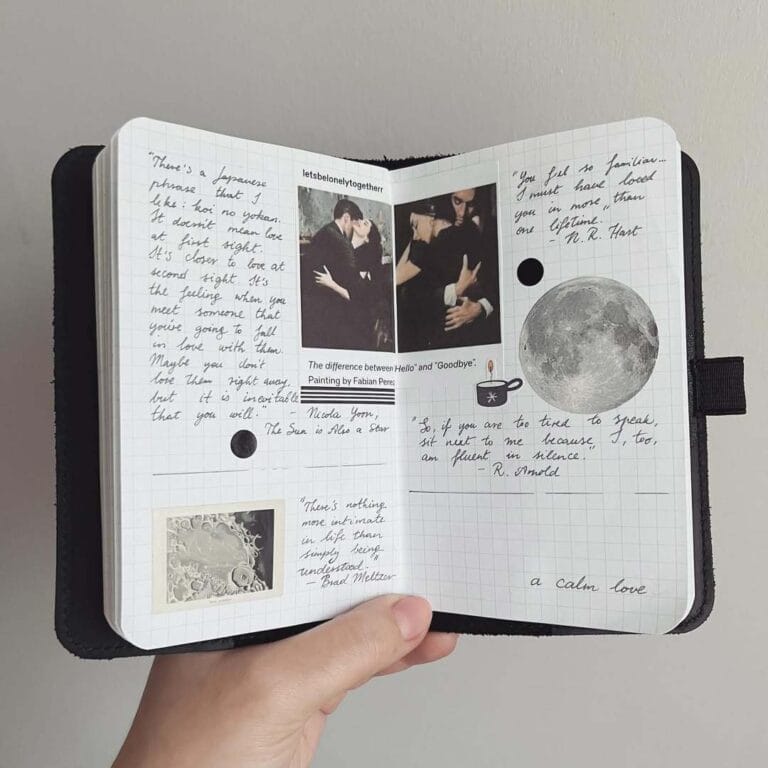 "There's a Japanese
phrase that I
like: koi no yokan.
It doesn't mean love
at first sight.
It's closer to love at
second sight. It's
the feeling when you
meet someone that
you're going to fall
in love with them.
Maybe you don't
love them right away,
but it is inevitable
that you will."
- Nicola Yoon,
The Sun is Also a Star
letsbelonelytogetherr
The difference between Hello" and "Goodbye".
Painting by Fabian Perez
"There's nothing
more intimate
in life than
simply being
understood."
- Brad Meltzer
"You feel so familiar...
I must have loved
you in more than
one lifetime."
- N.R. Hart
"So, if you are too tired to speak,
sit next to me because I, too,
am fluent in silence."
- R. Arnold
a calm love